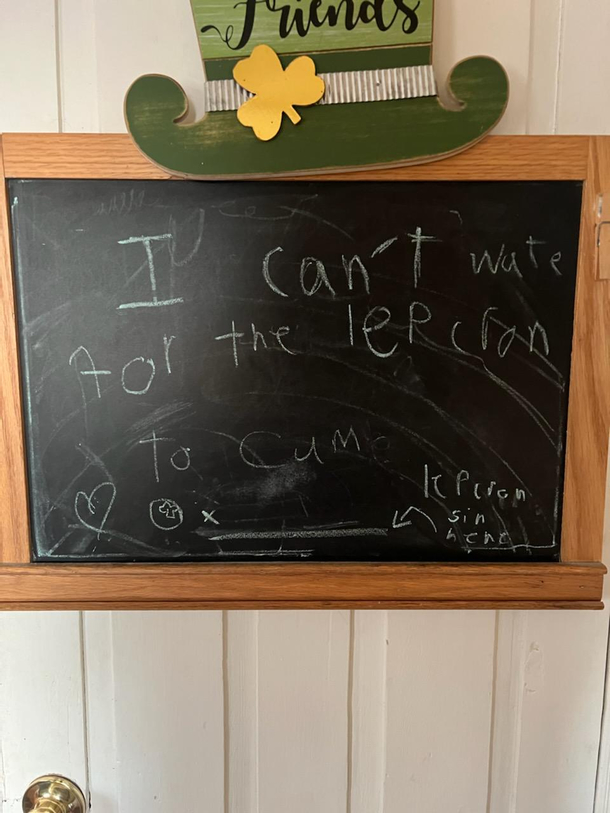 Friends
I can't wate
for the leprcran
to cume
lepcran
sin
here
x